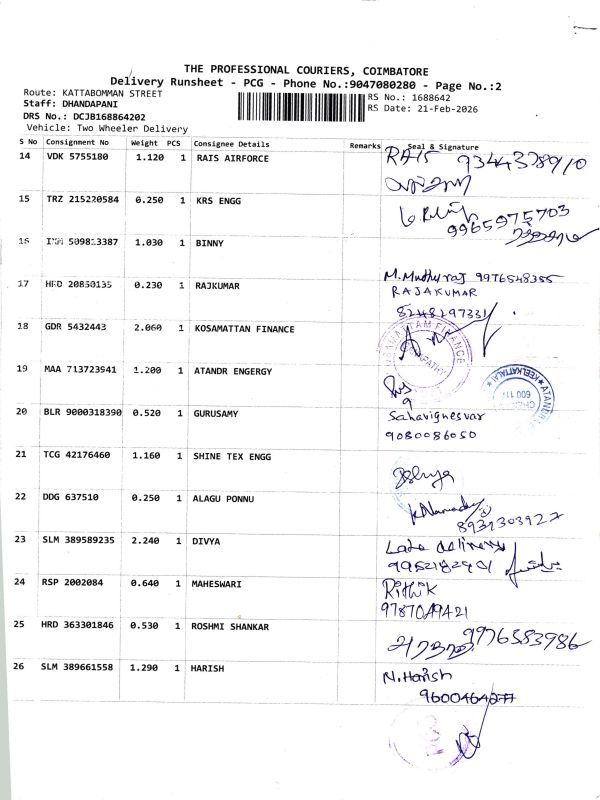 THE PROFESSIONAL COURIERS, COIMBATORE
Delivery Runsheet - PCG - Phone No.:9047080280 - Page No.:2
Route: KATTABOMMAN STREET
Staff: DHANDAPANI
DRS No.: DCJB168864202
Vehicle: Two Wheeler Delivery
RS No.: 1688642
RS Date: 21-Feb-2026
S No Consignment No Weight PCS Consignee Details Remarks Seal & Signature
14 VDK 5755180 1.120 1 RAIS AIRFORCE RAIS
15 TRZ 215220584 0.250 1 KRS ENGG
9965975703
16 509813387 1.030 1 BINNY
M. Muthuraj 9976548355
17 HRD 20850135 0.230 1 RAJKUMAR RAJAKUMAR
8248297331
18 GDR 5432443 2.060 1 KOSAMATTAN FINANCE
KOSAMATTAM FINANCE
19 MAA 713723941 1.200 1 ATANDR ENGERGY
20 BLR 9000318390 0.520 1 GURUSAMY Sahavignesvar
9080086050
21 TCG 42176460 1.160 1 SHINE TEX ENGG
22 DDG 637510 0.250 1 ALAGU PONNU
8931303927
23 SLM 389589235 2.240 1 DIVYA Late delivery
24 RSP 2002084 0.640 1 MAHESWARI Rithik
25 HRD 363301846 0.530 1 ROSHMI SHANKAR 9976583986
26 SLM 389661558 1.290 1 HARISH N. Harish